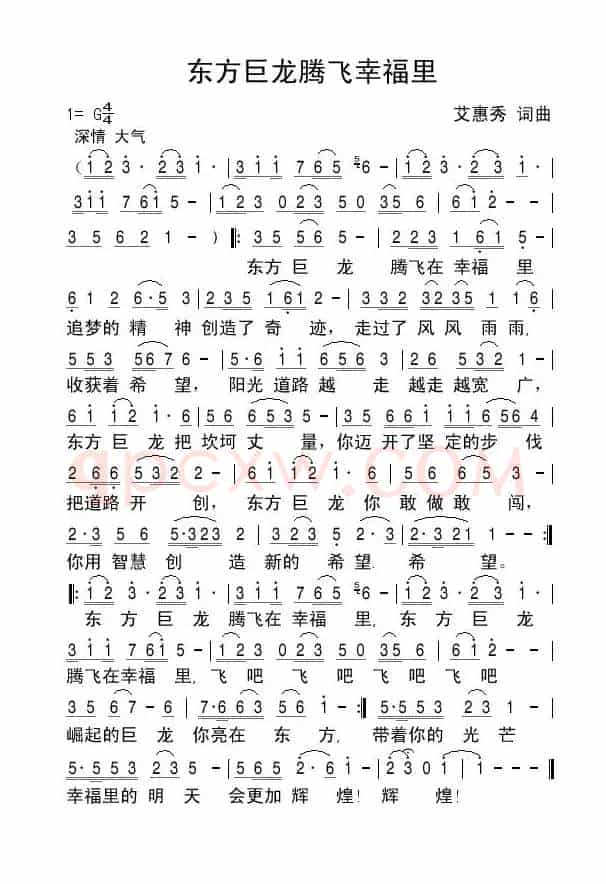 东方巨龙腾飞幸福里
1= G4/4 艾惠秀 词曲
深情 大气
(1 2 3· 2 3 1· | 3 1 1 7 6 5 5 6 - | 1 2 3· 2 3 1· |
3 1 1 7 6 1 5 - | 1 2 3 0 2 3 5 0 3 5 | 6 1 2 - - |
3 5 6 2 1 - ) |: 3 5 5 6 5 - | 2 2 3 1 6 1 5 - |
东方 巨 龙 腾飞在 幸福 里
6 1 2 6·5 3 | 2 3 5 1 6 1 2 - | 3 3 2 3 2 3 5 1 1 6 |
追梦的 精 神 创造了 奇 迹, 走过了 风 风 雨 雨,
5 5 3 5 6 7 6 - | 5·6 1 1 6 5 6 3 | 2 6 5 3 2 1 - |
收获着 希 望, 阳光 道路 越 走 越走 越宽 广,
6 1 1 2 1·6 | 5 6 6 5 3 5 - | 3 5 1·7 1 1 6 5 6 4 |
东方 巨 龙 把 坎坷 丈 量, 你迈 开了 坚 定的 步 伐
2 6 6 5 3 2 2 - | 6 1 1 2 3 1· | 2 1 6 5 6 - |
把道路 开 创, 东方 巨 龙 你 敢 做 敢 闯,
2·3 5 6 5·3 2 3 2 | 3 2 3 5 2· 3 | 2·3 2 1 1 - - :|
你用 智慧 创 造 新的 希 望. 希 望。
|: 1 2 3· 2 3 1· | 3 1 1 7 6 5 5 6 - | 1 2 3· 2 3 1· |
东 方 巨 龙 腾飞在 幸福 里, 东 方 巨 龙
3 1 1 7 6 1 5 - | 1 2 3 0 2 3 5 0 3 5 | 6 1 2 - - |
腾飞在幸福 里, 飞 吧 飞 吧 飞 吧
3 5 6 7 6 - | 7·6 6 3 5 1 - :| 5·5 5 3 2 3 1 |
崛起的巨 龙 你亮在 东 方, 带着你的 光 芒
5·5 5 3 2 3 5 - | 5·6 5 5 2·6 1 | 2·3 0 1 | 1 - - - ‖
幸福里的 明 天 会更加 辉 煌! 辉 煌!
qpcxw.com